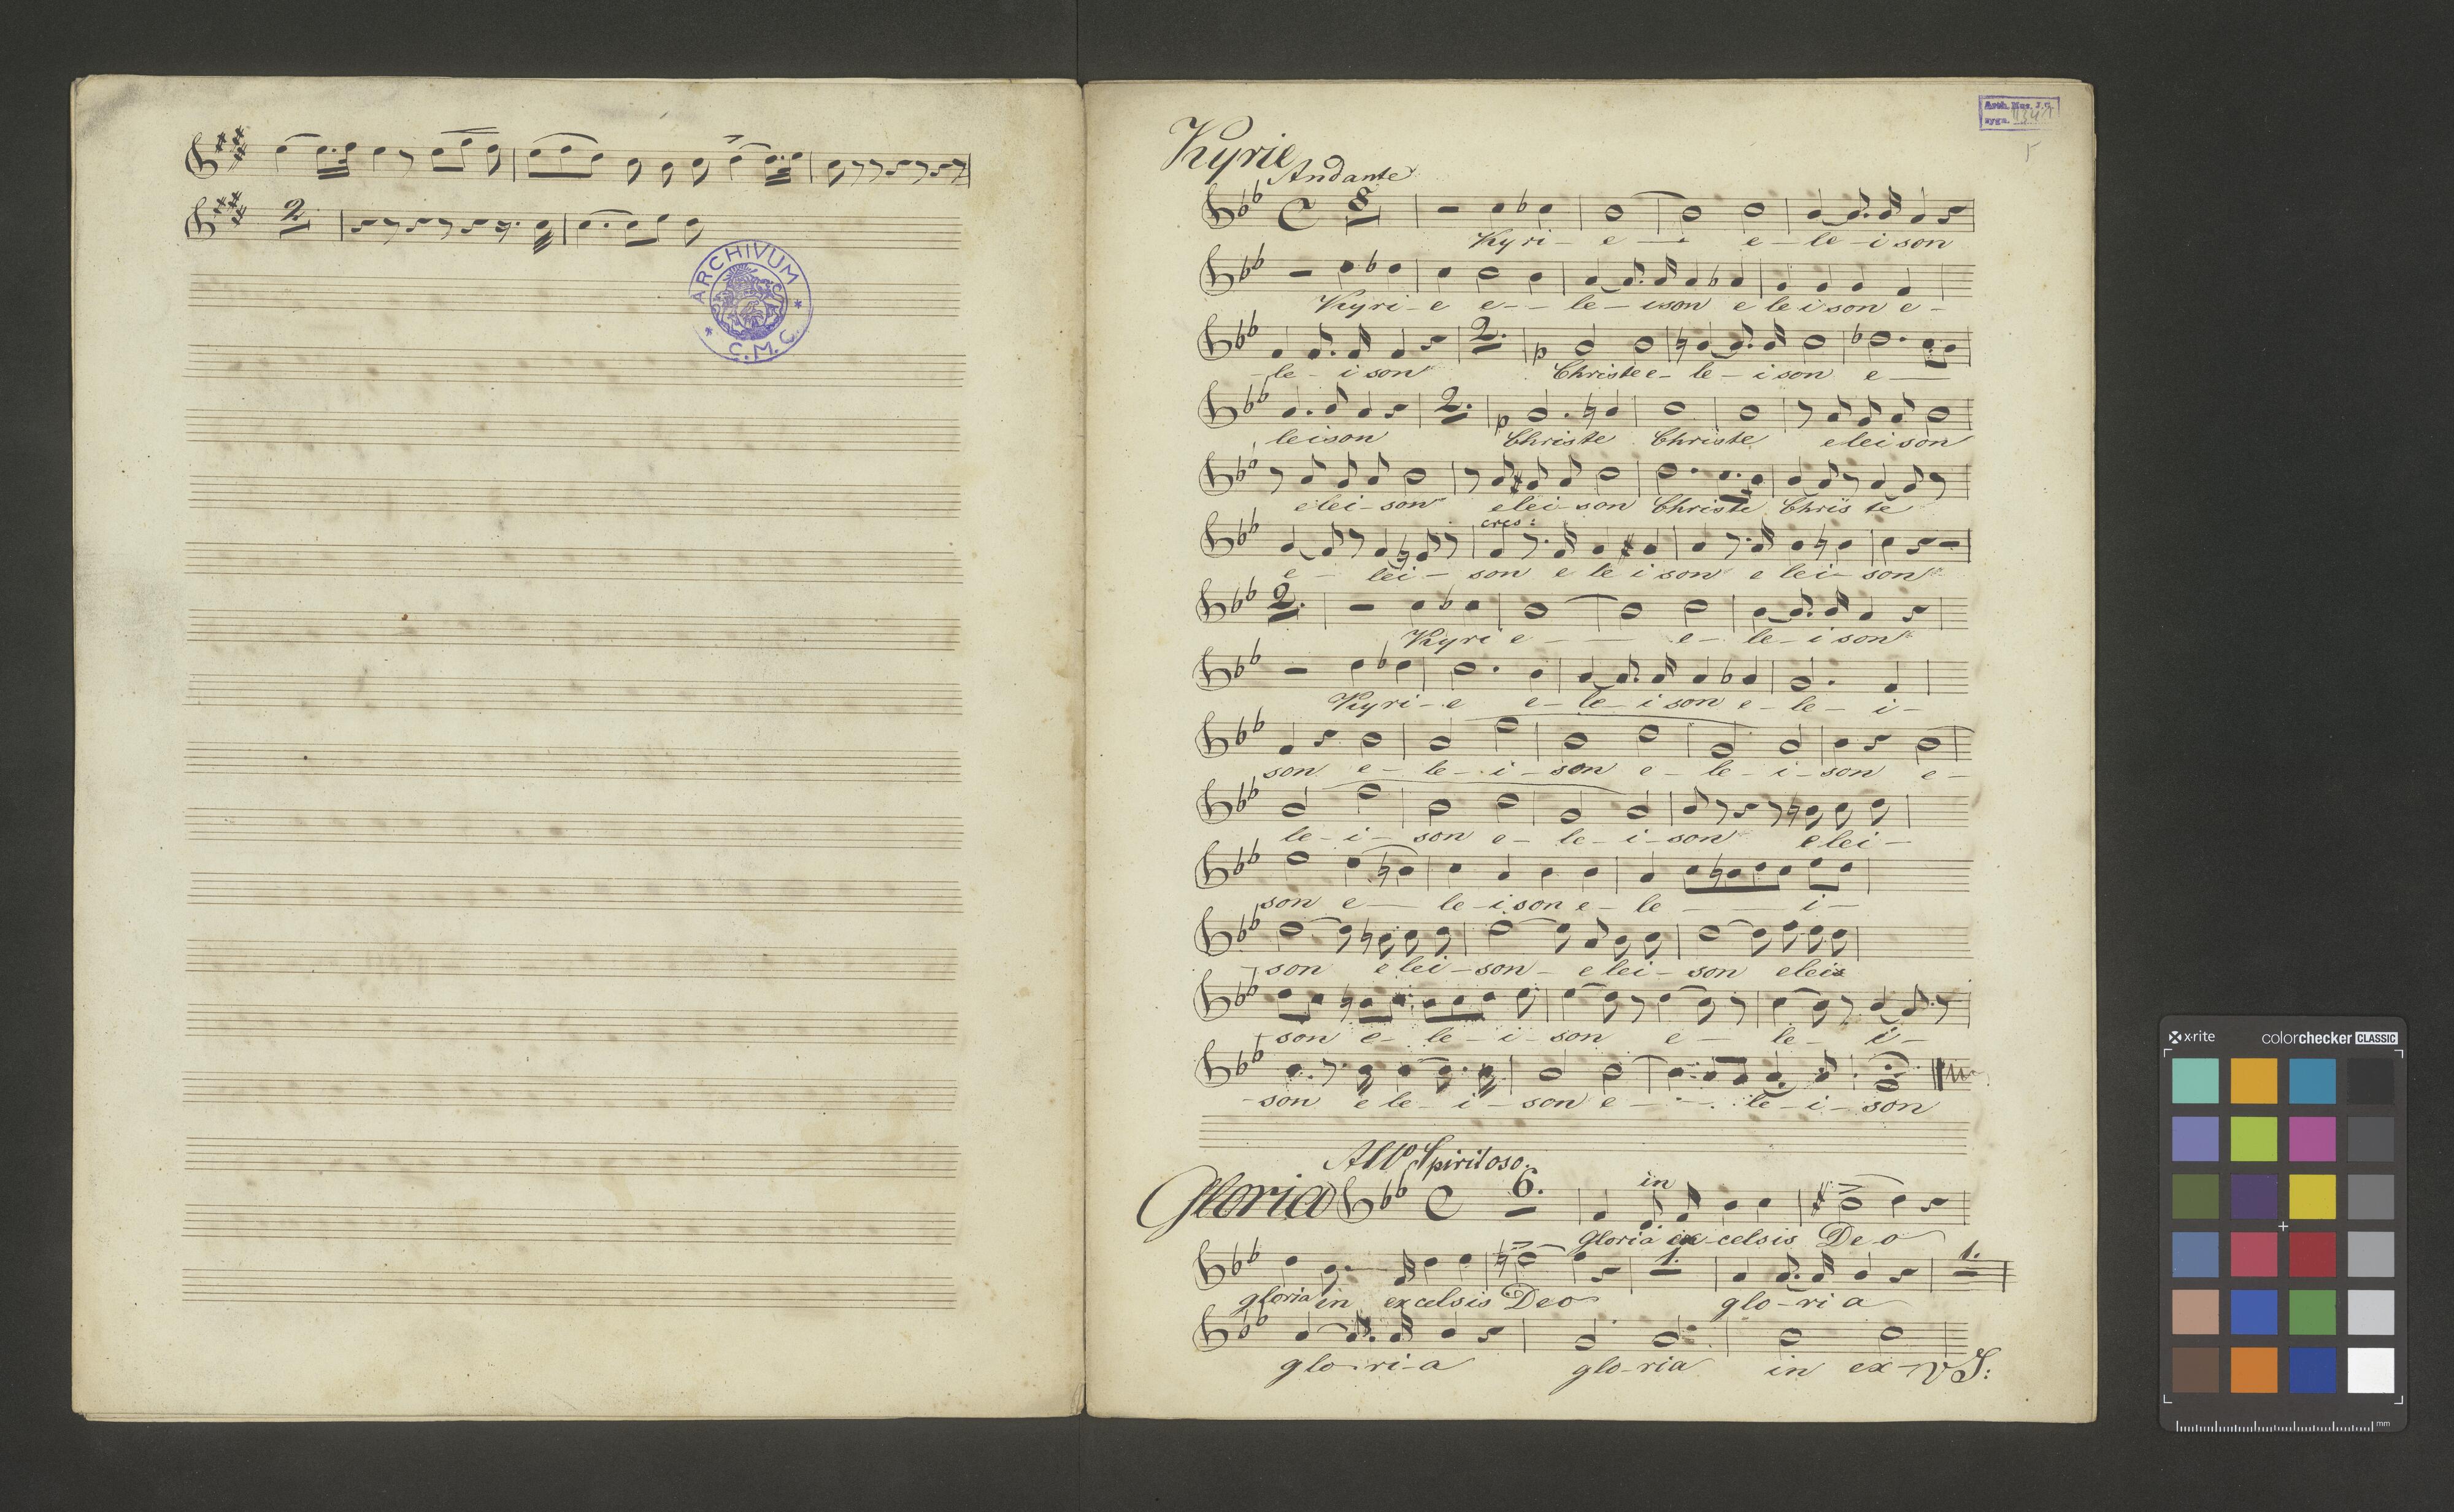 2.
ARCHIVUM
* C.M.C. *
Arch. Mus. J.G.
sygn.
Kyrie
Andante
8
Kyri- e — e- le-ison
Kyri-e e-- le- ison e leison e-
-le- ison
2.
p
Christe e- le- ison e —
leison
2.
p
Christe Christe eleison
elei-son elei-son Christe Christe
cres:
e- lei- son e le ison e lei-son
2.
Kyri e — — e- le-i son
Kyri-e e-le-ison e-le- i-
son e- le-i-son e- le-i-son e-
le-i- son e- le-i-son elei-
son e— le-ison e- le — i-
son elei-son- elei- son eleis
son e- le-i-son e- le- i-
-son e le-i-son e — le-i-son
Allo Spiritoso.
Gloria
6.
in
Gloria ex-celsis Deo
1.
1.
gloria in excelsis Deo glo-ri a
glo-ri-a glo-ria in ex- VS:
x-rite
colorchecker CLASSIC
mm